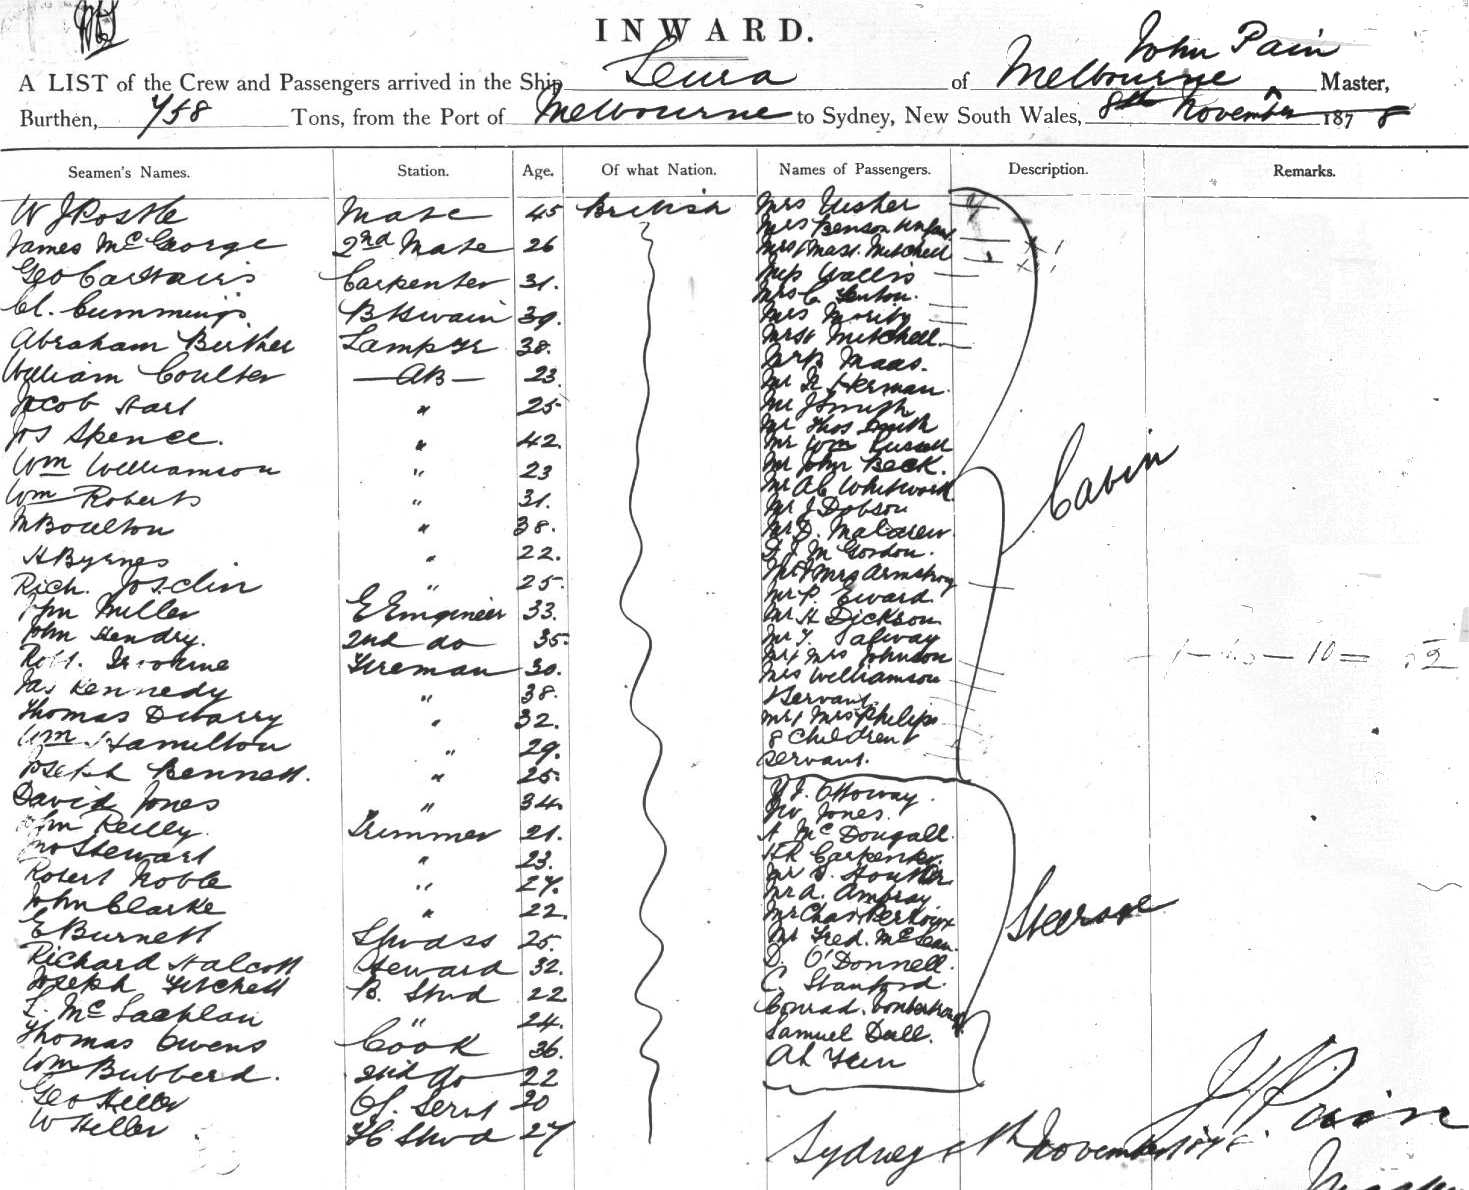 INWARD.
John Pain
A LIST of the Crew and Passengers arrived in the Ship Leura of Melbourne Master,
Burthen, 758 Tons, from the Port of Melbourne to Sydney, New South Wales, 8th November 1878
Seamen's Names. Station. Age. Of what Nation. Names of Passengers. Description. Remarks.
W J Postle Mate 45 British Mrs Usher
Mrs Benson & Infant
James McGeorge 2nd Mate 26 Mrs & Mast. Mitchell
Geo Carstairs Carpenter 31. Miss Wallis
Mrs C Fenton.
Cl. Cummings BSwain 39. Mrs Moriby
Abraham Bither Lamp Tr 38. Mitchell.
Maas.
William Coulter AB 23 Mr Herman
Jacob Hart " 25 Mr J Smith
Mr Thos Smith
Jos Spence. " 42. Mr Wm Russell
Wm Williamson " 23 Mr John Beck.
Mr AC Whitworth
Wm Roberts " 31. Mr J Dobson
M Boulton " 38. Mr D.
H Byrnes " 22. J M Gordon.
Rich. Josclin " 25. Mr & Mrs Armstrong
Jhn Miller E Emgineer 33. Mr P. Eward.
Mr H Dickson
John Hendry. 2nd do 35. Mr T. Salway
Robt. Fireman 30. Mr & Mrs Johnson
Mrs Williamson
Jas Kennedy " 38. Servant
Thomas Dwarry " 32. Mr & Mrs Philips
Wm Hamilton " 29. 8 Children &
Servant.
Cabin
Joseph Bennett. " 25.
David Jones " 34. Ottoway.
Jones.
John Reilly. Trimmer 21. A McDougall.
Stewart " 23. HR Carpenter.
Robert Noble " 27. Mr
Mr A. Ambray
John Clarke " 22. Mr Chas
E Burnett Stwdss 25. Mr Fred. McLean.
Richard Halcott Steward 32. D. O'Donnell.
Joseph Fitchett B. Stwd 22 C. Stanford.
L. McLachlan " 24. Conrad.
Thomas Owens Cook 36. Samuel Dall.
Wm Bubberd. 2nd do 22 Ah Yeen
Steerage
Geo Hiller Cl. Servt 20
W Heller FC Stwd 27
J Pain
Sydney November 1878.